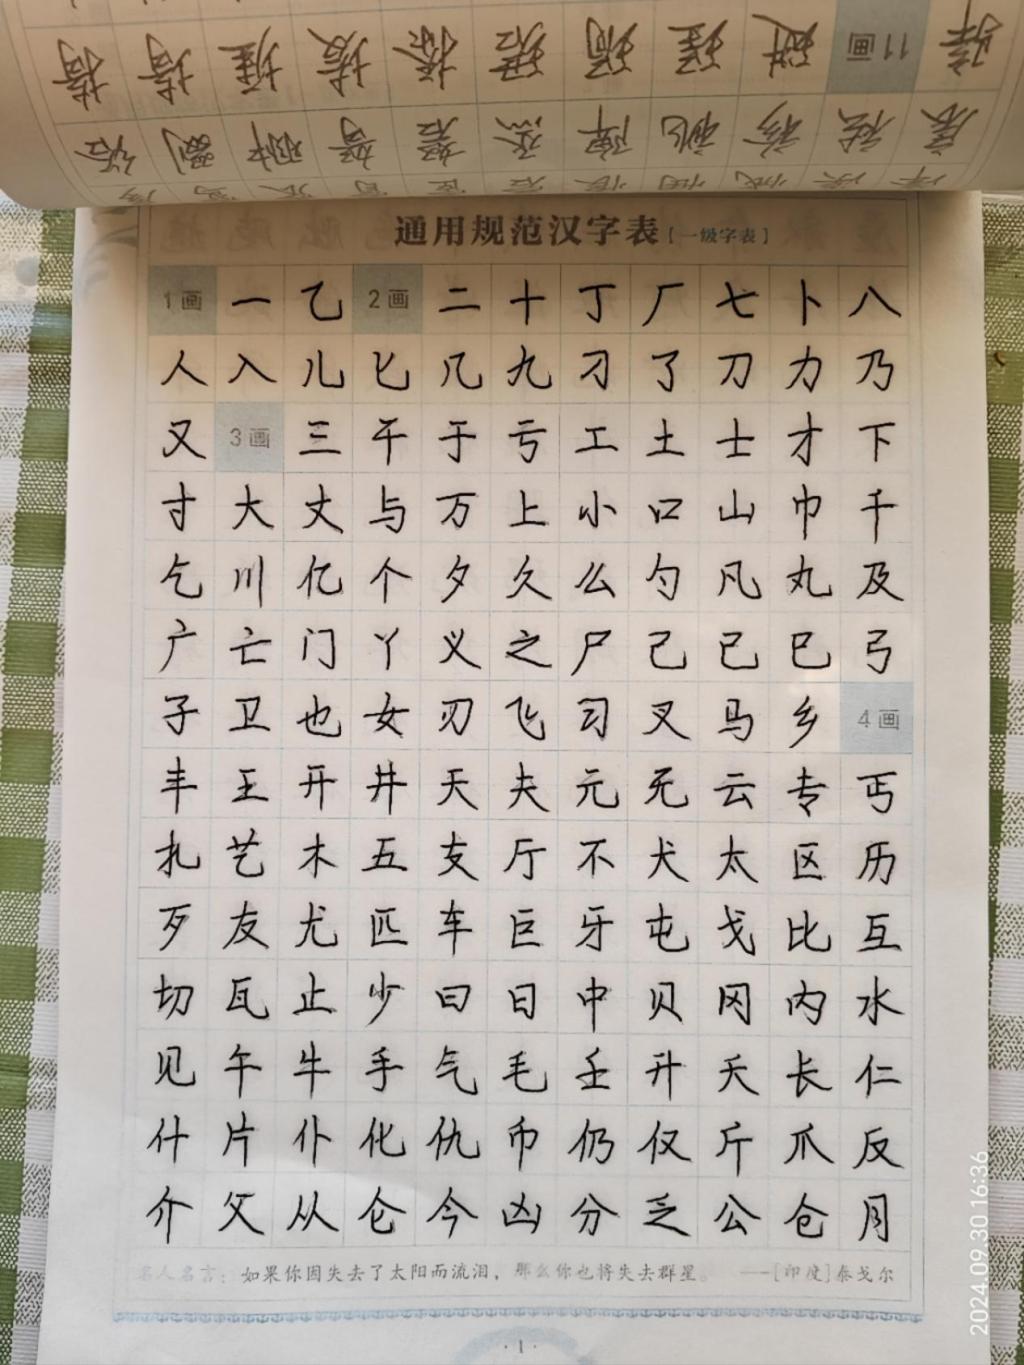 通用规范汉字表[一级字表]
1画 一 乙 2画 二 十 丁 厂 七 卜 八
人 入 儿 匕 几 九 刁 了 刀 力 乃
又 3画 三 干 于 亏 工 土 士 才 下
寸 大 丈 与 万 上 小 口 山 巾 千
乞 川 亿 个 夕 久 么 勺 凡 丸 及
广 亡 门 丫 义 之 尸 己 已 巳 弓
子 卫 也 女 刃 飞 习 叉 马 乡 4画
丰 王 开 井 天 夫 元 无 云 专 丐
扎 艺 木 五 支 厅 不 犬 太 区 历
歹 友 尤 匹 车 巨 牙 屯 戈 比 互
切 瓦 止 少 曰 日 中 贝 冈 内 水
见 午 牛 手 气 毛 壬 升 夭 长 仁
什 片 仆 化 仇 币 仍 仅 斤 爪 反
介 父 从 仑 今 凶 分 乏 公 仓 月
名人名言：如果你因失去了太阳而流泪，那么你也将失去群星。 ——[印度]泰戈尔
·1·
2024.09.30 16:36